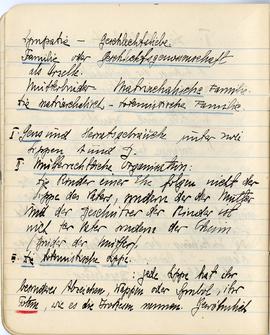 Sympatie – Geschlechtsliebe.
Familie oder Geschlechtsgenossenschaft
als Quelle.
Mutterbruder – Matriarchalische Familie.
Die matriarchalisch-totemistische Familie.
I. Gens und Heiratsgebräuche unter zwei
Sippen 1 und 2.
II. Mutterrechtliche Organisation:
die Kinder einer Ehe folgen nicht der
Sippe des Vaters, sondern der der Mutter
und der Beschützer der Kinder ist
nicht der Vater sondern der Oheim
(Bruder der Mutter)
III. Die totemistische Sippe.
: jede Sippe hat ihr
besonderes Abzeichen, Wappen oder Symbol, ihr
Totem, wie es die Forscher nennen. Gewöhnlich